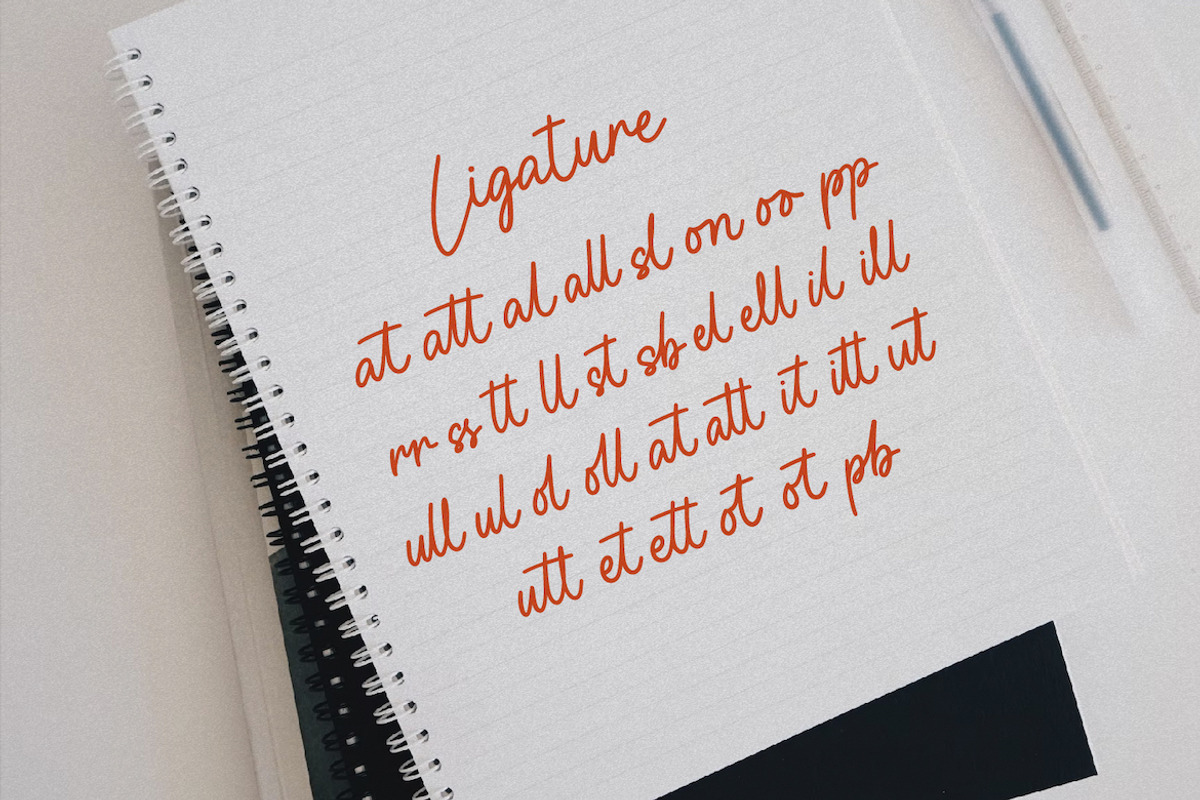 Ligature
at att al all sl on oo pp
rr ss tt ll st sb el ell il ill
ull ul ol oll at att it itt ut
utt et ett ot ot pb